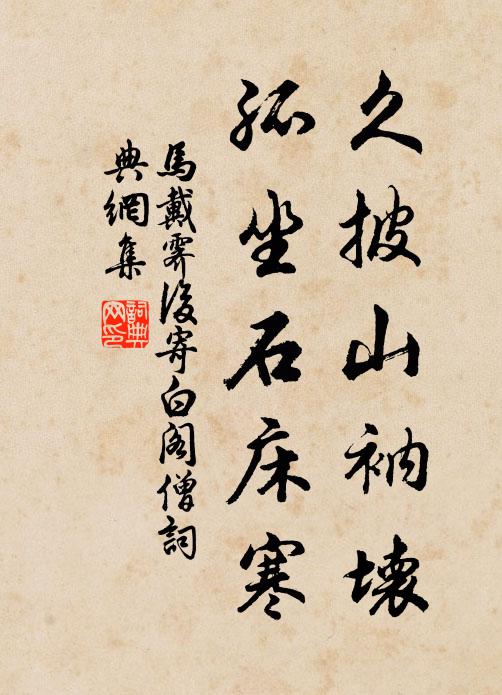 久披山衲壞
孤坐石床寒
馬戴霽後寄白閣僧詞
典網集
詞典
网印